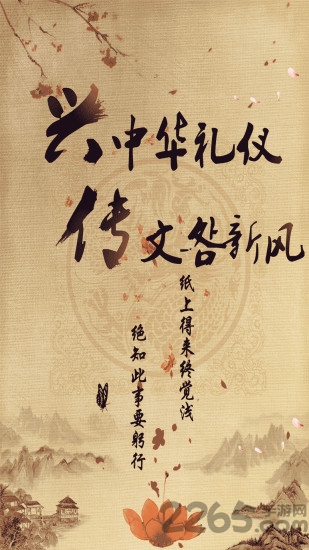 兴中华礼仪
传文新风
纸上得来终觉浅
绝知此事要躬行
2265.com
手游网